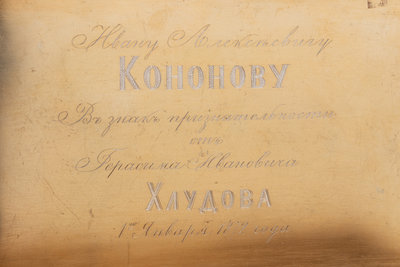 Ивану Алексѣевичу
КОНОНОВУ
Въ знакъ признательности
отъ
Герасима Ивановича
ХЛУДОВА
1го Января года